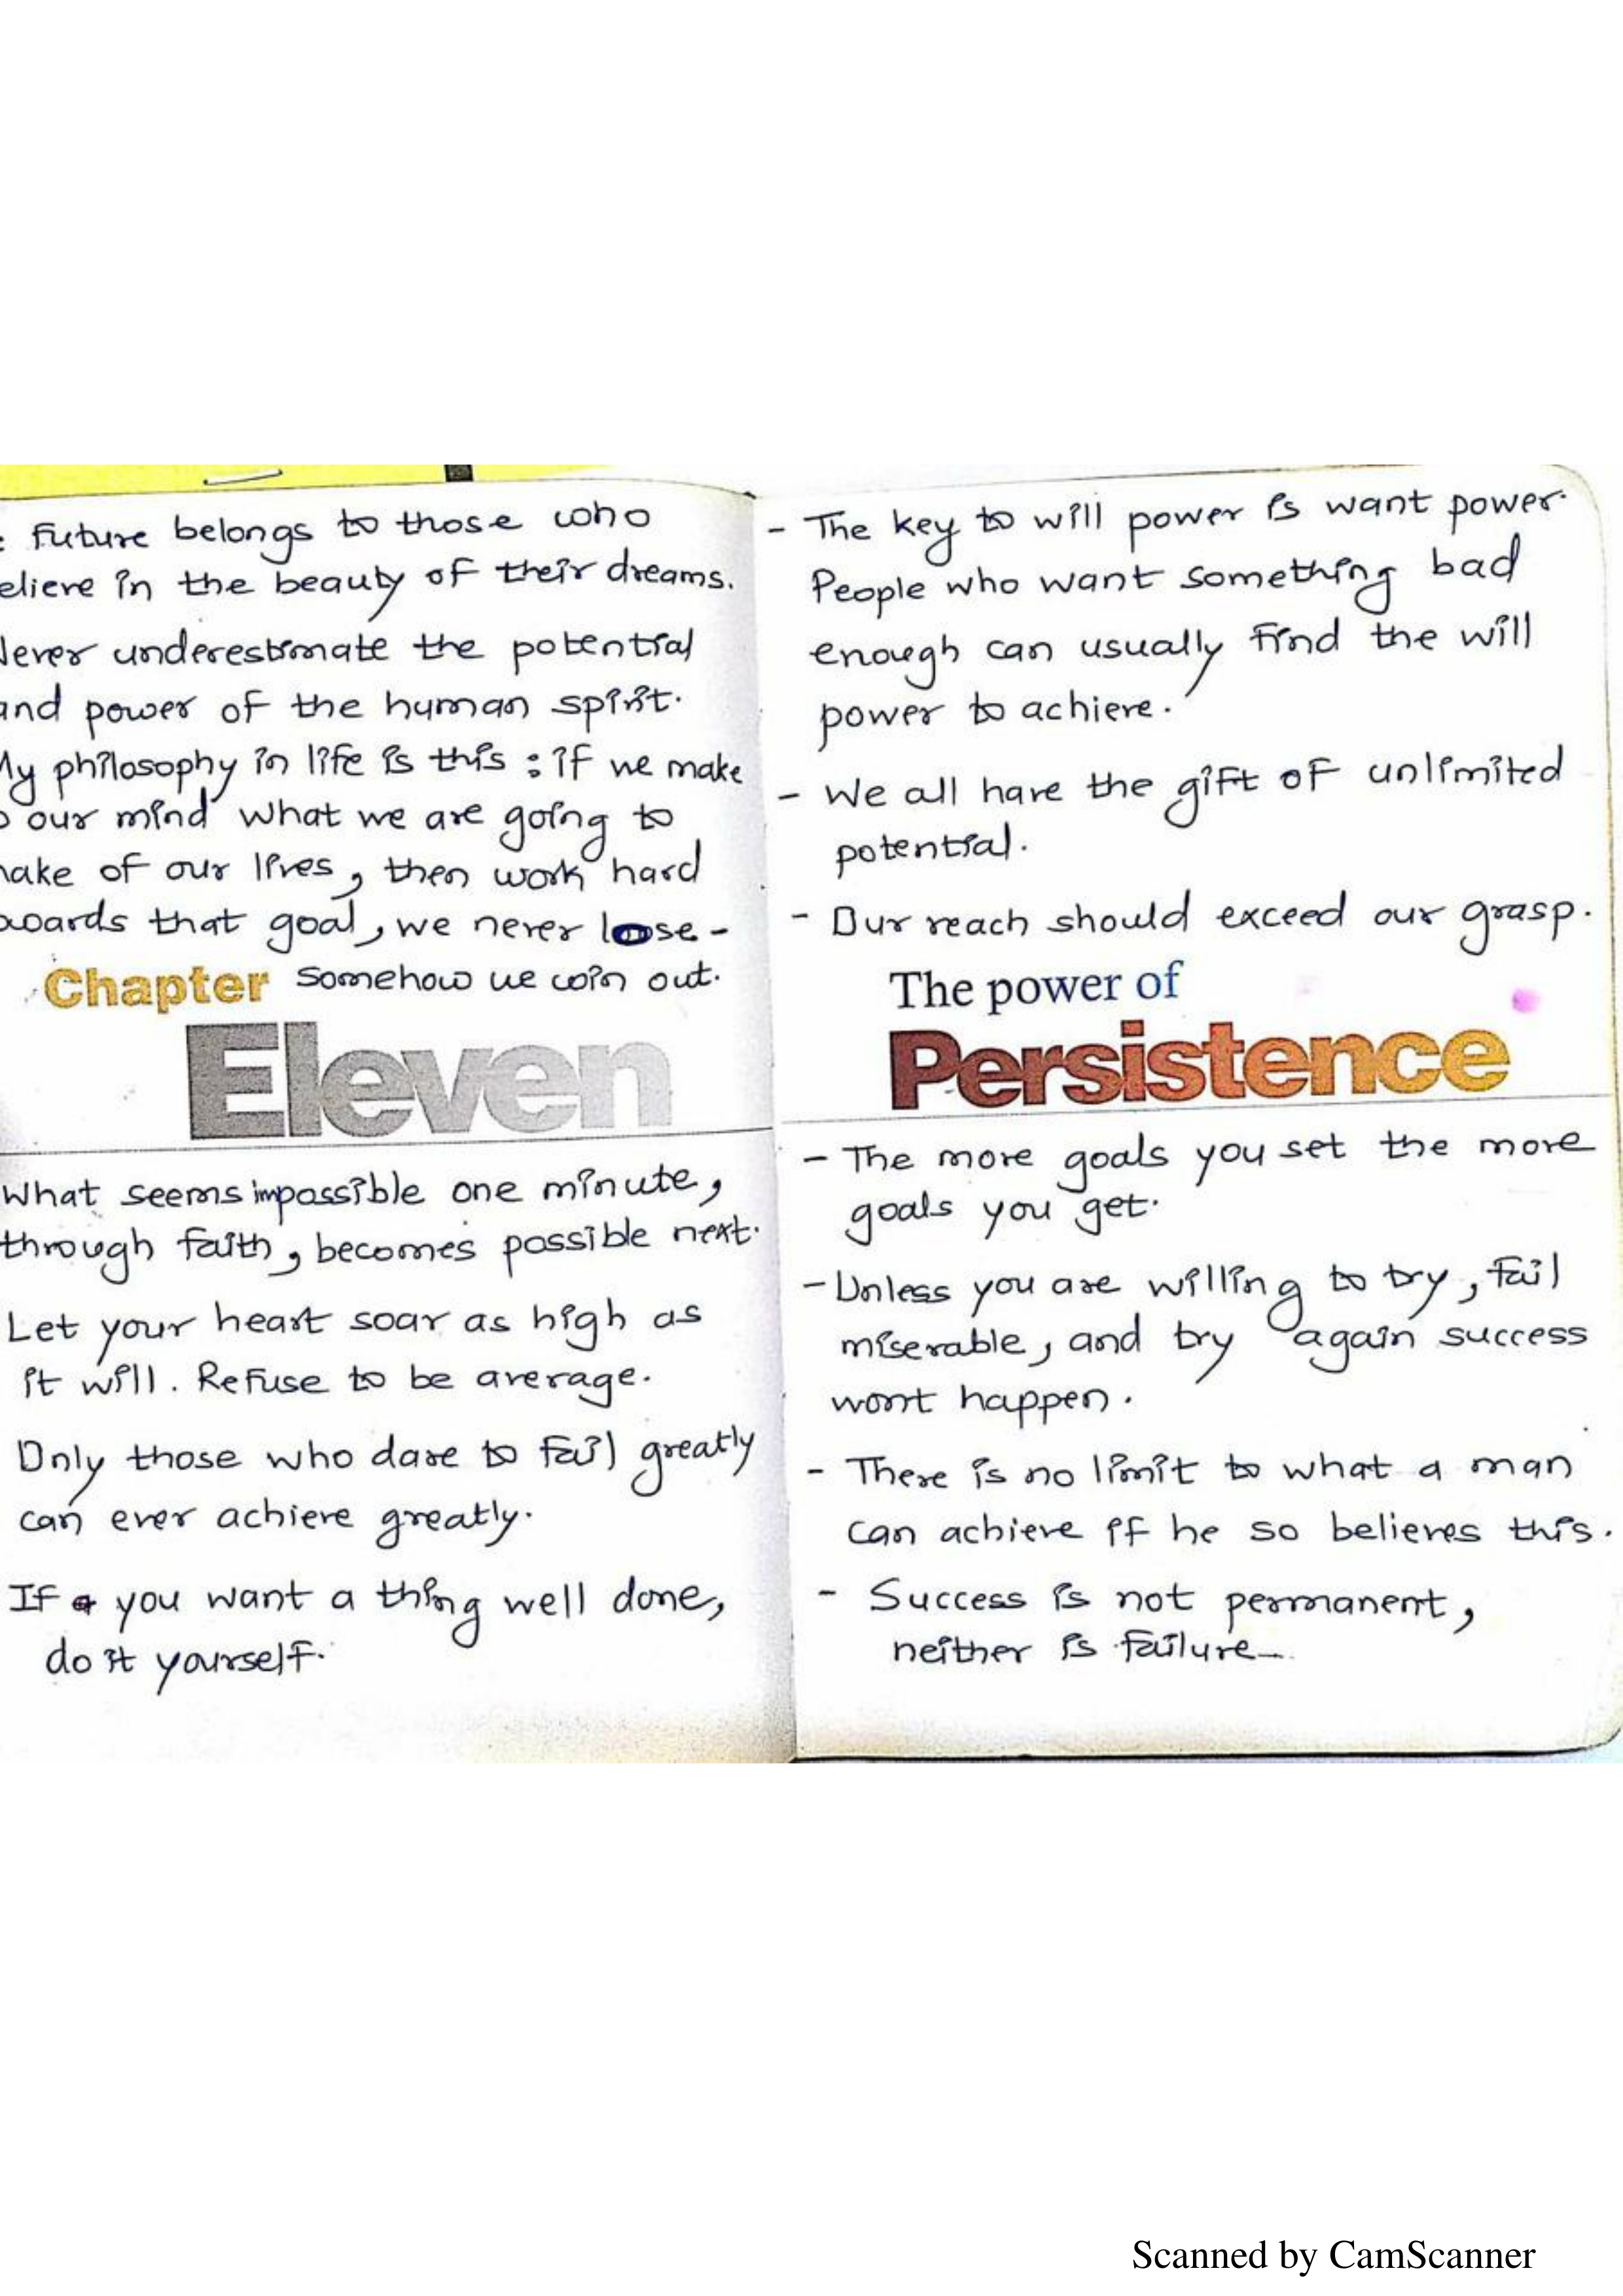 : future belongs to those who
elieve in the beauty of their dreams.
lever underestimate the potential
and power of the human spirit.
My philosophy in life is this : if we make
o our mind what we are going to
nake of our lives, then work hard
owards that goal, we never loose -
Chapter somehow we win out.
Eleven
What seems impossible one minute,
through faith, becomes possible next.
Let your heart soar as high as
it will. Refuse to be average.
Only those who dare to fail greatly
can ever achieve greatly.
If you want a thing well done,
do it yourself.
- The key to will power is want power.
People who want something bad
enough can usually find the will
power to achieve.
- We all have the gift of unlimited
potential.
- Our reach should exceed our grasp.
The power of
Persistence
- The more goals you set the more
goals you get.
- Unless you are willing to try, fail
miserable, and try again success
wont happen.
- There is no limit to what a man
can achieve if he so believes this.
- Success is not permanent,
neither is failure_
Scanned by CamScanner